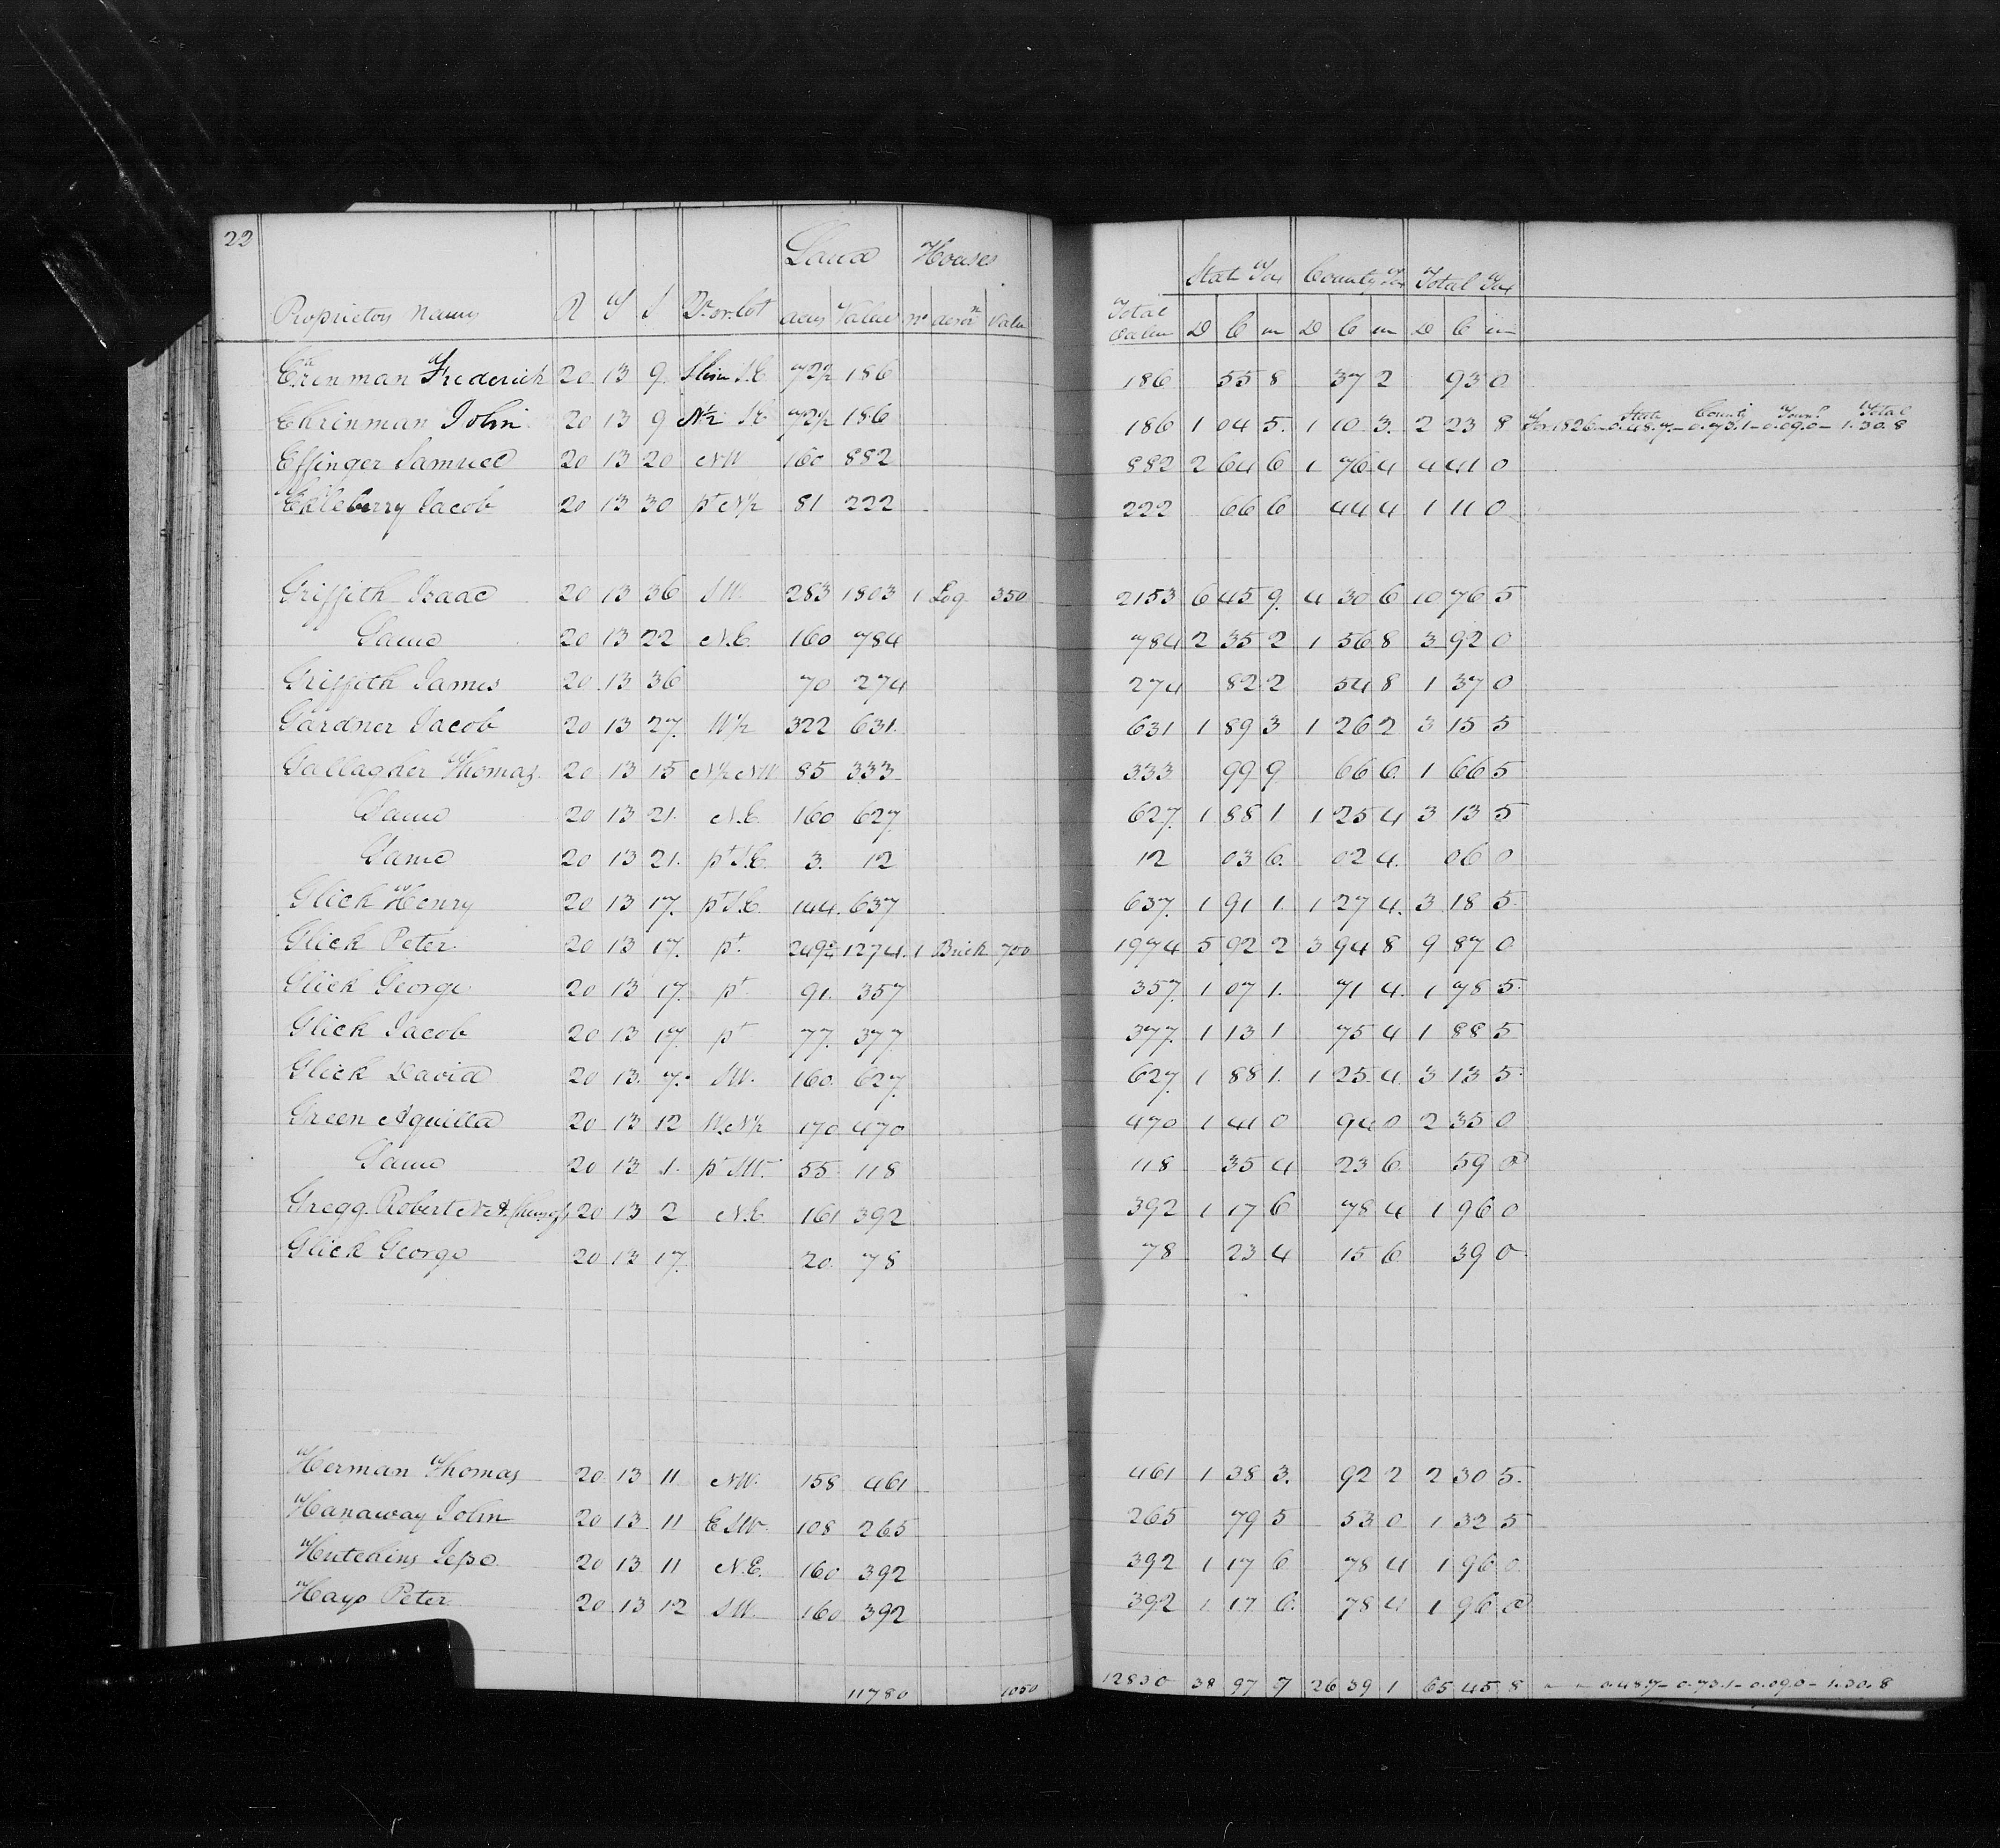 22
Land Houses
Proprietors Names R T S Qr. or. Lot acres Value No descrn Value
State Tax County Tax Total Tax
Total Value D C m D C m D C m
Ehrinman Frederick 20 13 9 S.E. 72½ 186 186 55 8 37 2 93 0
Ehrinman John 20 13 9 N½ S.E. 72½ 186 186 1 04 5 1 10 3 2 23 8 For 1826 – State 0.48.7 – County 0.73.1 – Town 0.09.0 – Total 1.30.8
Effinger Samuel 20 13 20 NW 160 882 882 2 64 6 1 76 4 4 41 0
Ekleberry Jacob 20 13 30 pt N½ 81 222 222 66 6 44 4 1 11 0
Griffith Isaac 20 13 36 SW. 283 1803 1 Log 350 2153 6 45 9 4 30 6 10 76 5
Same 20 13 22 N.E. 160 784 784 2 35 2 1 56 8 3 92 0
Griffith James 20 13 36 70 274 274 82 2 54 8 1 37 0
Gardner Jacob 20 13 27 W½ 322 631 631 1 89 3 1 26 2 3 15 5
Gallagher Thomas 20 13 15 N½ NW 85 333 333 99 9 66 6 1 66 5
Same 20 13 21 N.E. 160 627 627 1 88 1 1 25 4 3 13 5
Same 20 13 21 pt S.E. 3 12 12 03 6 02 4 06 0
Glick Henry 20 13 17 pt S.E. 144 637 637 1 91 1 1 27 4 3 18 5
Glick Peter 20 13 17 pt. 249½ 1274 1 Brick 700 1974 5 92 2 3 94 8 9 87 0
Glick George 20 13 17 pt 91 357 357 1 07 1 71 4 1 78 5
Glick Jacob 20 13 17 pt 77 377 377 1 13 1 75 4 1 88 5
Glick David 20 13 7 SW. 160 627 627 1 88 1 1 25 4 3 13 5
Green Aquilla 20 13 12 W.N½ 170 470 470 1 41 0 94 0 2 35 0
Same 20 13 1 pt SW. 55 118 118 35 4 23 6 59 0
Gregg Robert N & 20 13 2 N.E. 161 392 392 1 17 6 78 4 1 96 0
Glick George 20 13 17 20 78 78 23 4 15 6 39 0
Herman Thomas 20 13 11 NW. 158 461 461 1 38 3 92 2 2 30 5
Hanaway John 20 13 11 E SW. 108 265 265 79 5 53 0 1 32 5
Hutchins Jesse 20 13 11 N.E. 160 392 392 1 17 6 78 4 1 96 0
Hays Peter 20 13 12 SW. 160 392 392 1 17 6 78 4 1 96 0
11780 1050 12830 38 97 7 26 39 1 65 45 8 " " 0.48.7 – 0.73.1 – 0.09.0 – 1.30.8